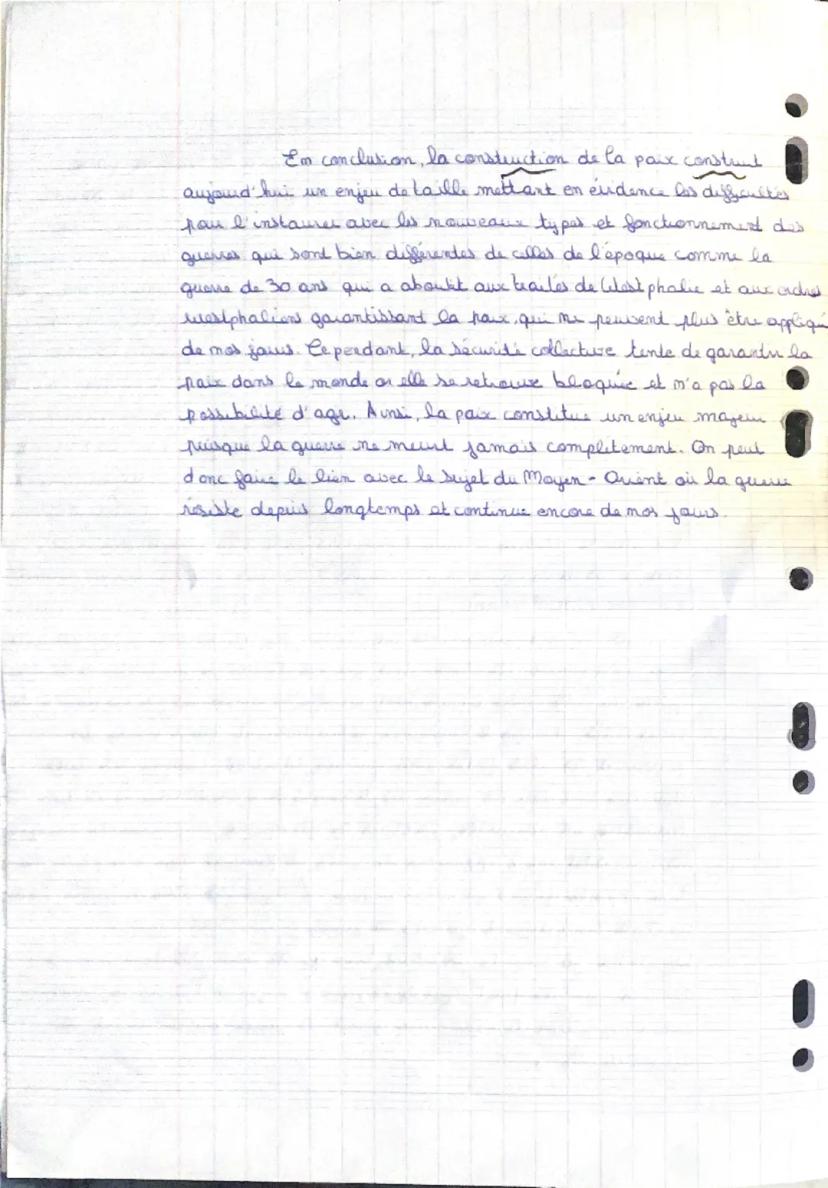 En conclusion, la construction de la paix construit
aujourd'hui un enjeu de taille mettant en évidence les difficultés
pour l'instaurer avec les nouveaux types et fonctionnement des
guerres qui sont bien différentes de celles de l'époque comme la
guerre de 30 ans qui a aboutit aux traités de Westphalie et aux ordres
westphaliens garantissant la paix, qui ne peuvent plus être appliqu
de nos jours. Cependant, la sécurité collective tente de garantir la
paix dans le monde or elle se retrouve bloquée et n'a pas la
possibilité d'agir. Ainsi, la paix constitue un enjeu majeur
puisque la guerre ne meurt jamais complètement. On peut
donc faire le lien avec le sujet du Moyen-Orient où la guerre
résiste depuis longtemps et continue encore de nos jours.